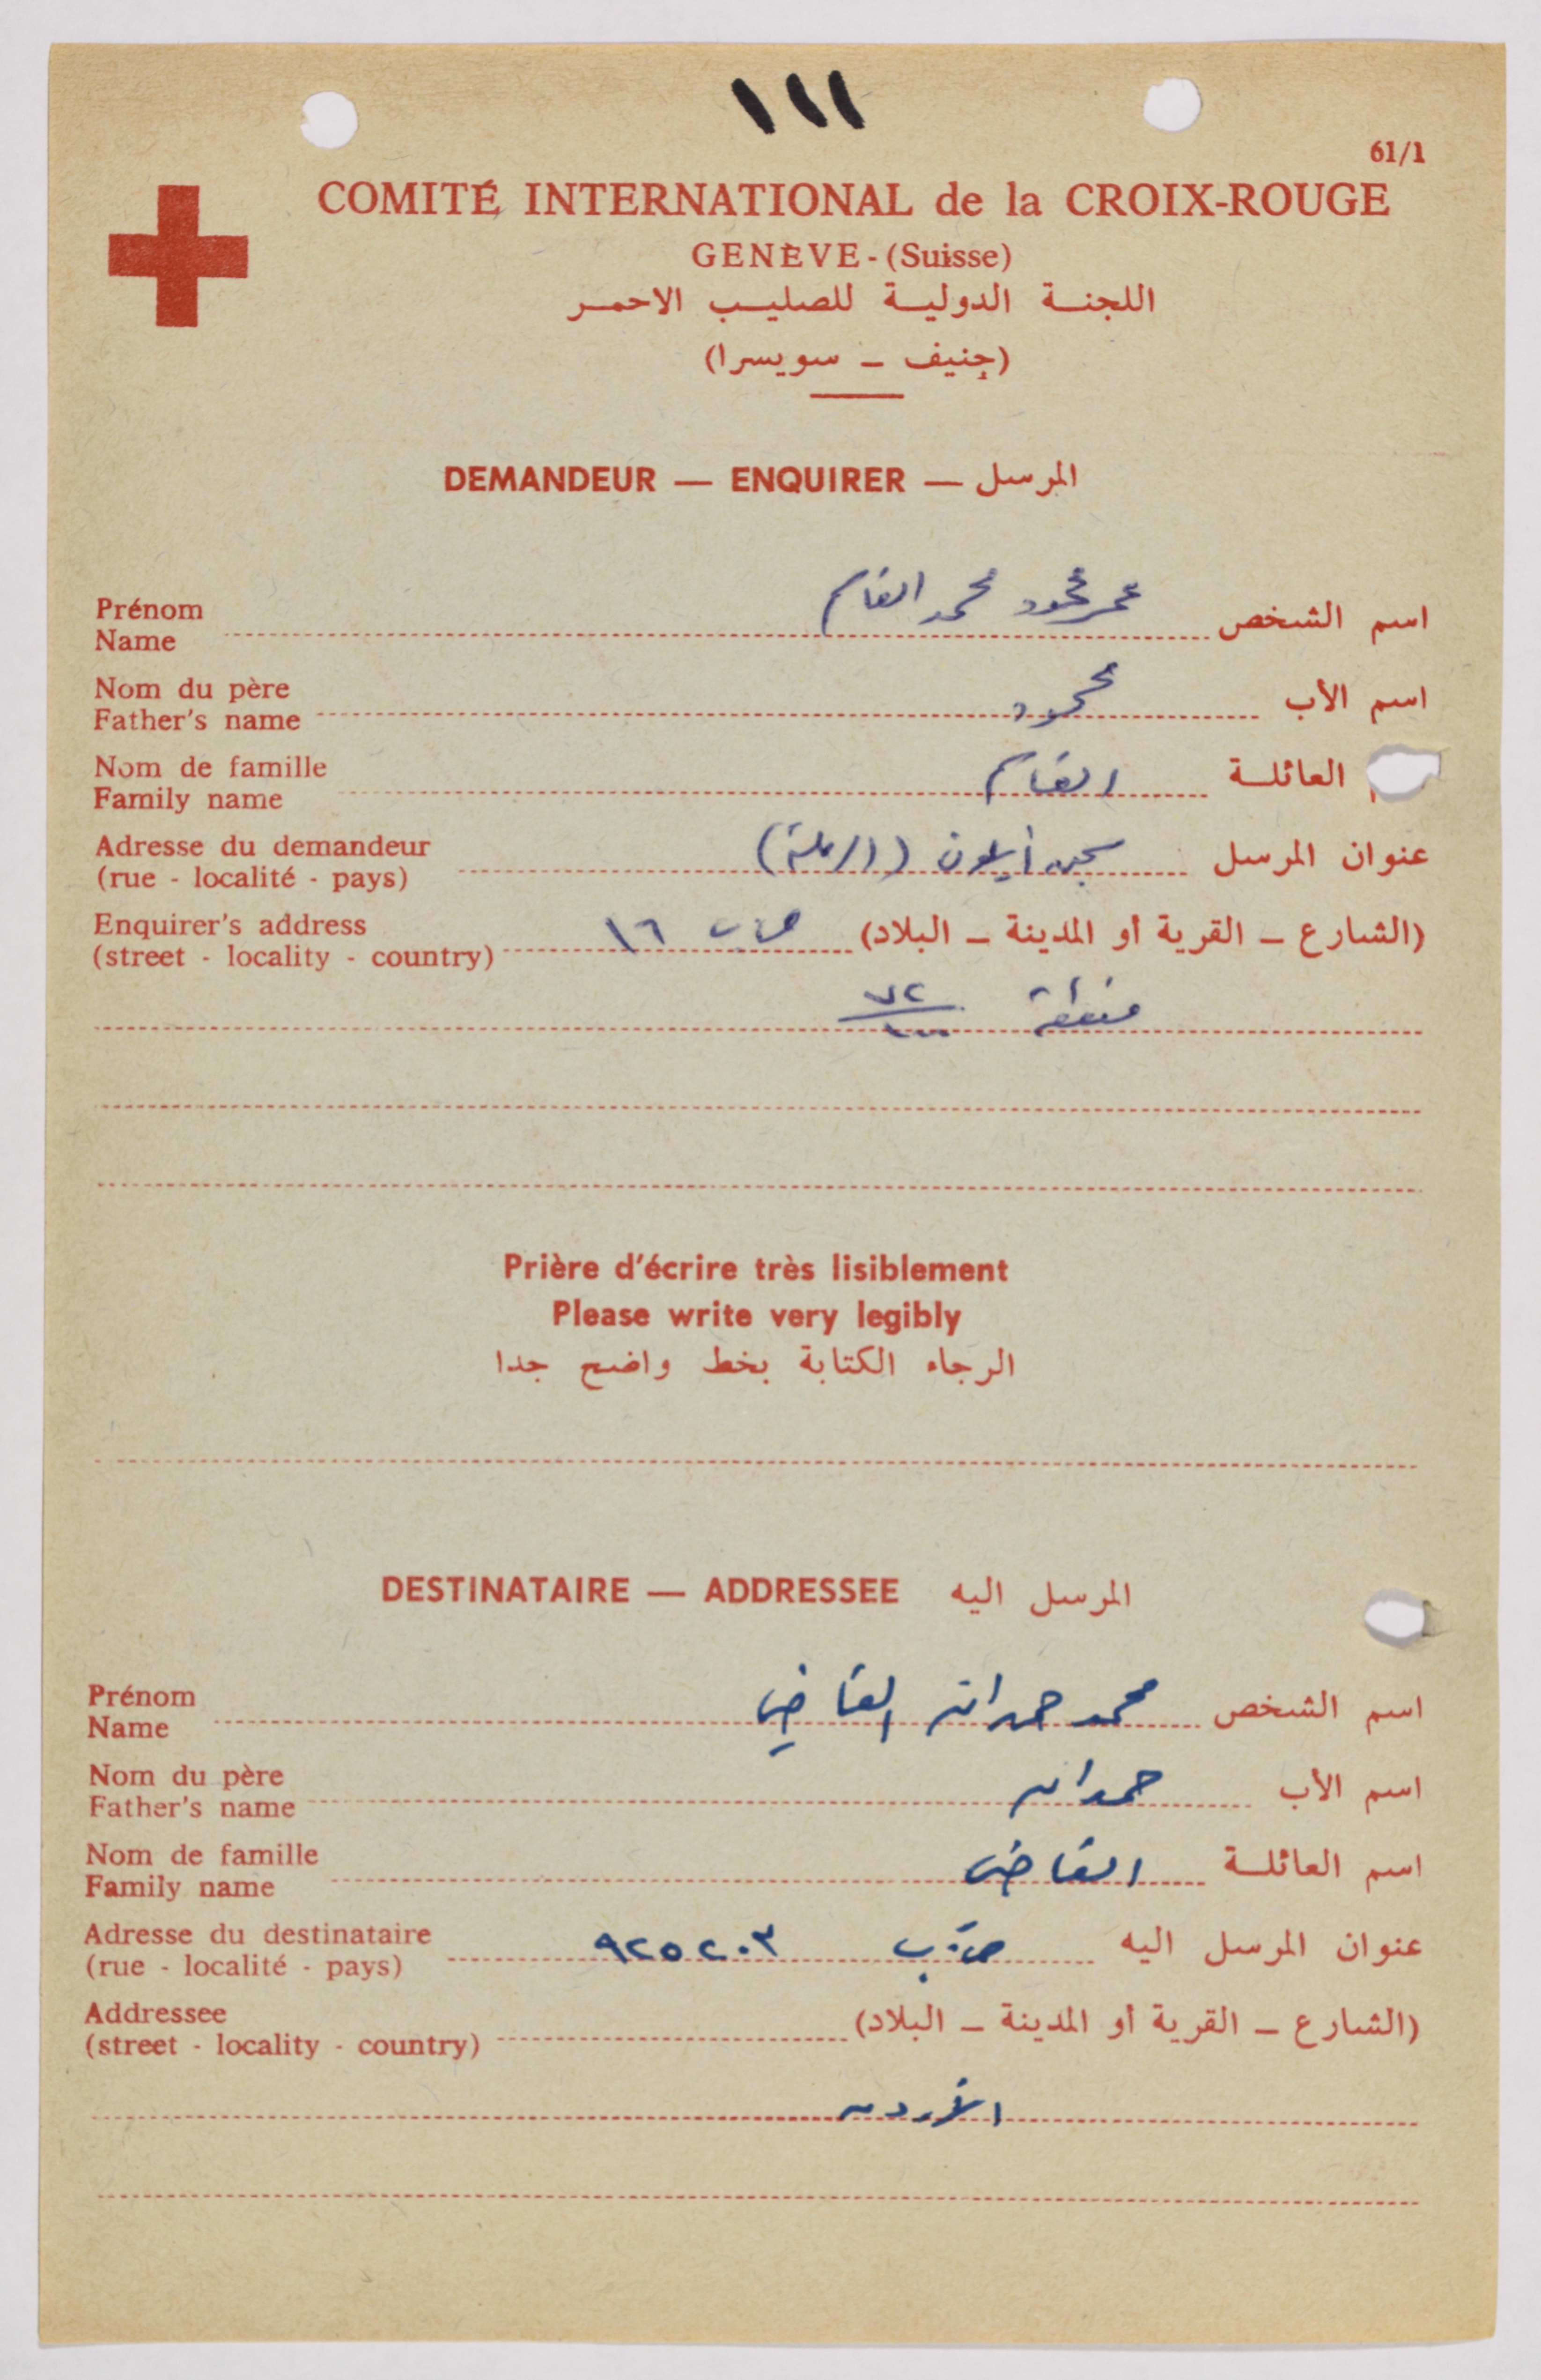 ١١١
61/1
COMITÉ INTERNATIONAL de la CROIX-ROUGE
GENÈVE - (Suisse)
اللجنة الدولية للصليب الاحمر
(جنيف – سويسرا)
DEMANDEUR — ENQUIRER — المرسل
Prénom
Name
عمر محمود محمد القاسم
اسم الشخص
Nom du père
Father's name
محمود
اسم الأب
Nom de famille
Family name
القاسم
العائلة
Adresse du demandeur
(rue - localité - pays)
سجن أيلون (الرملة)
عنوان المرسل
Enquirer's address
(street - locality - country)
ص ب ١٦
(الشارع – القرية أو المدينة – البلاد)
منطقة
Prière d'écrire très lisiblement
Please write very legibly
الرجاء الكتابة بخط واضح جدا
DESTINATAIRE — ADDRESSEE المرسل اليه
Prénom
Name
محمد حمدان القاضي
اسم الشخص
Nom du père
Father's name
حمدان
اسم الأب
Nom de famille
Family name
القاضي
اسم العائلة
Adresse du destinataire
(rue - localité - pays)
ص.ب ٩٢٥٢٠٣
عنوان المرسل اليه
Addressee
(street - locality - country)
(الشارع – القرية أو المدينة – البلاد)
الأردن